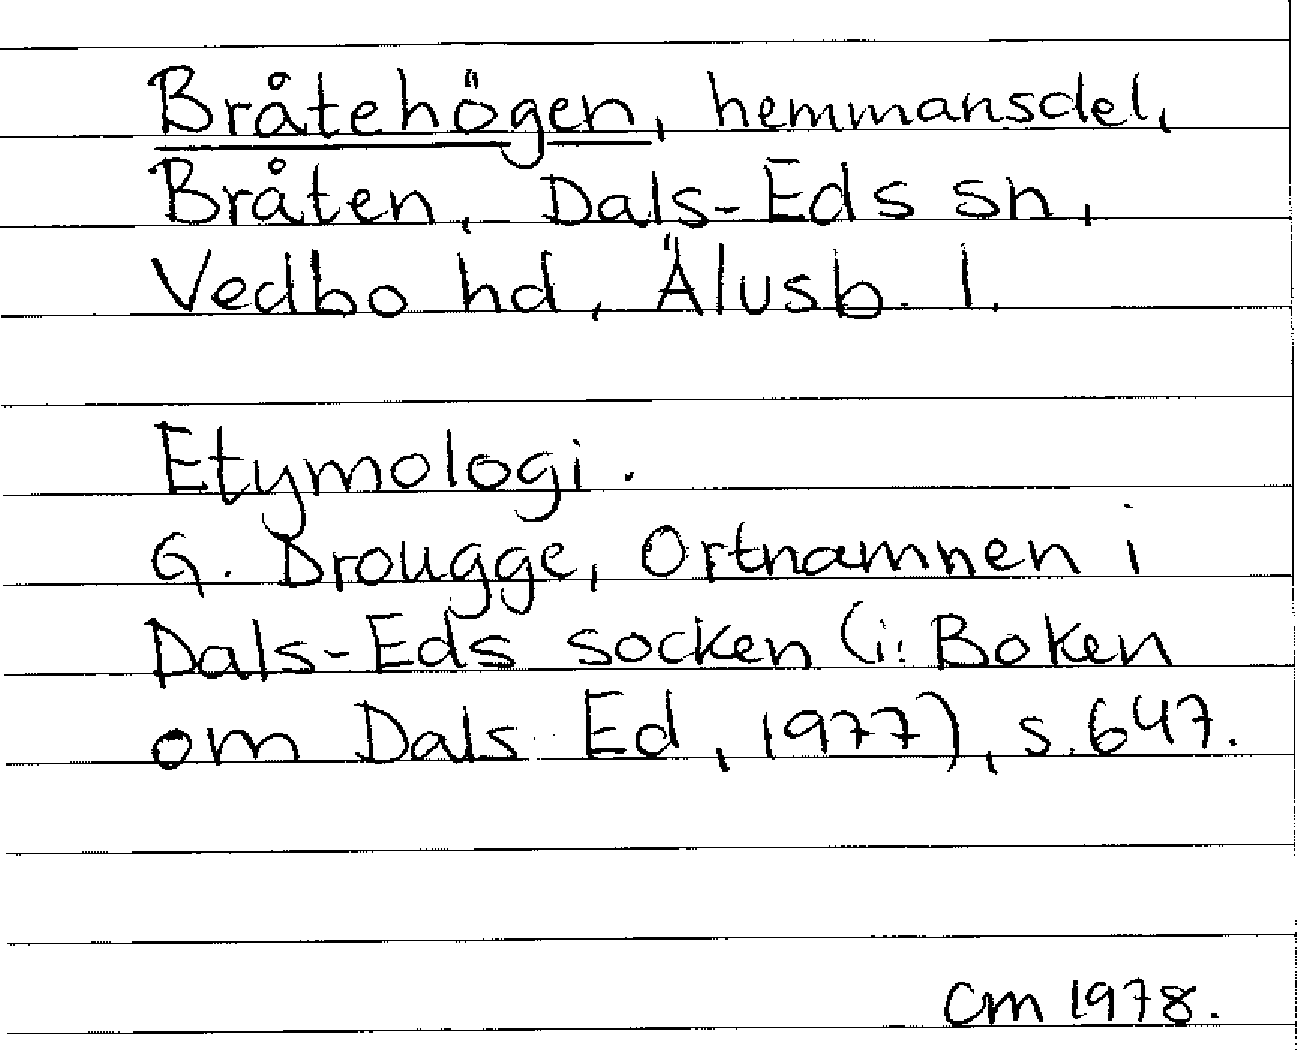 Bråtehögen, hemmansdel,
Bråten, Dals-Eds sn,
Vedbo hd, Älvsb. l.
Etymologi.
G. Drougge, Ortnamnen i
Dals-Eds socken (i: Boken
om Dals Ed, 1977), s. 647.
CM 1978.